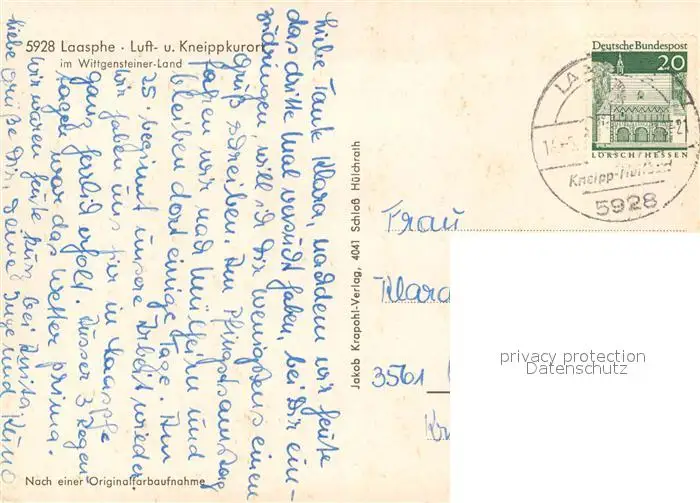 5928 Laasphe · Luft- u. Kneippkurort
im Wittgensteiner-Land
Liebe Tante Klara, nachdem wir heute
das dritte Mal versucht haben, bei Dir ein-
zudringen, will ich Dir wenigstens einen
Gruß schreiben. Am Pfingstsamstag
fahren wir nach Mülheim und
bleiben dort einige Tage. Am
25. beginnt unsere Arbeit wieder.
Wir haben uns hier in Laasphe
ganz herrlich erholt. Ausser 3 Regen-
tagen war das Wetter prima.
Wir waren heute kurz bei Anita.
Liebe Grüße Dir, Deine Inge und Kuno
Nach einer Originalfarbaufnahme
Jakob Krapohl-Verlag, 4041 Schloß Hülchrath
Deutsche Bundespost
20
LORSCH/HESSEN
5928
Frau
Klara
3561
privacy protection
Datenschutz